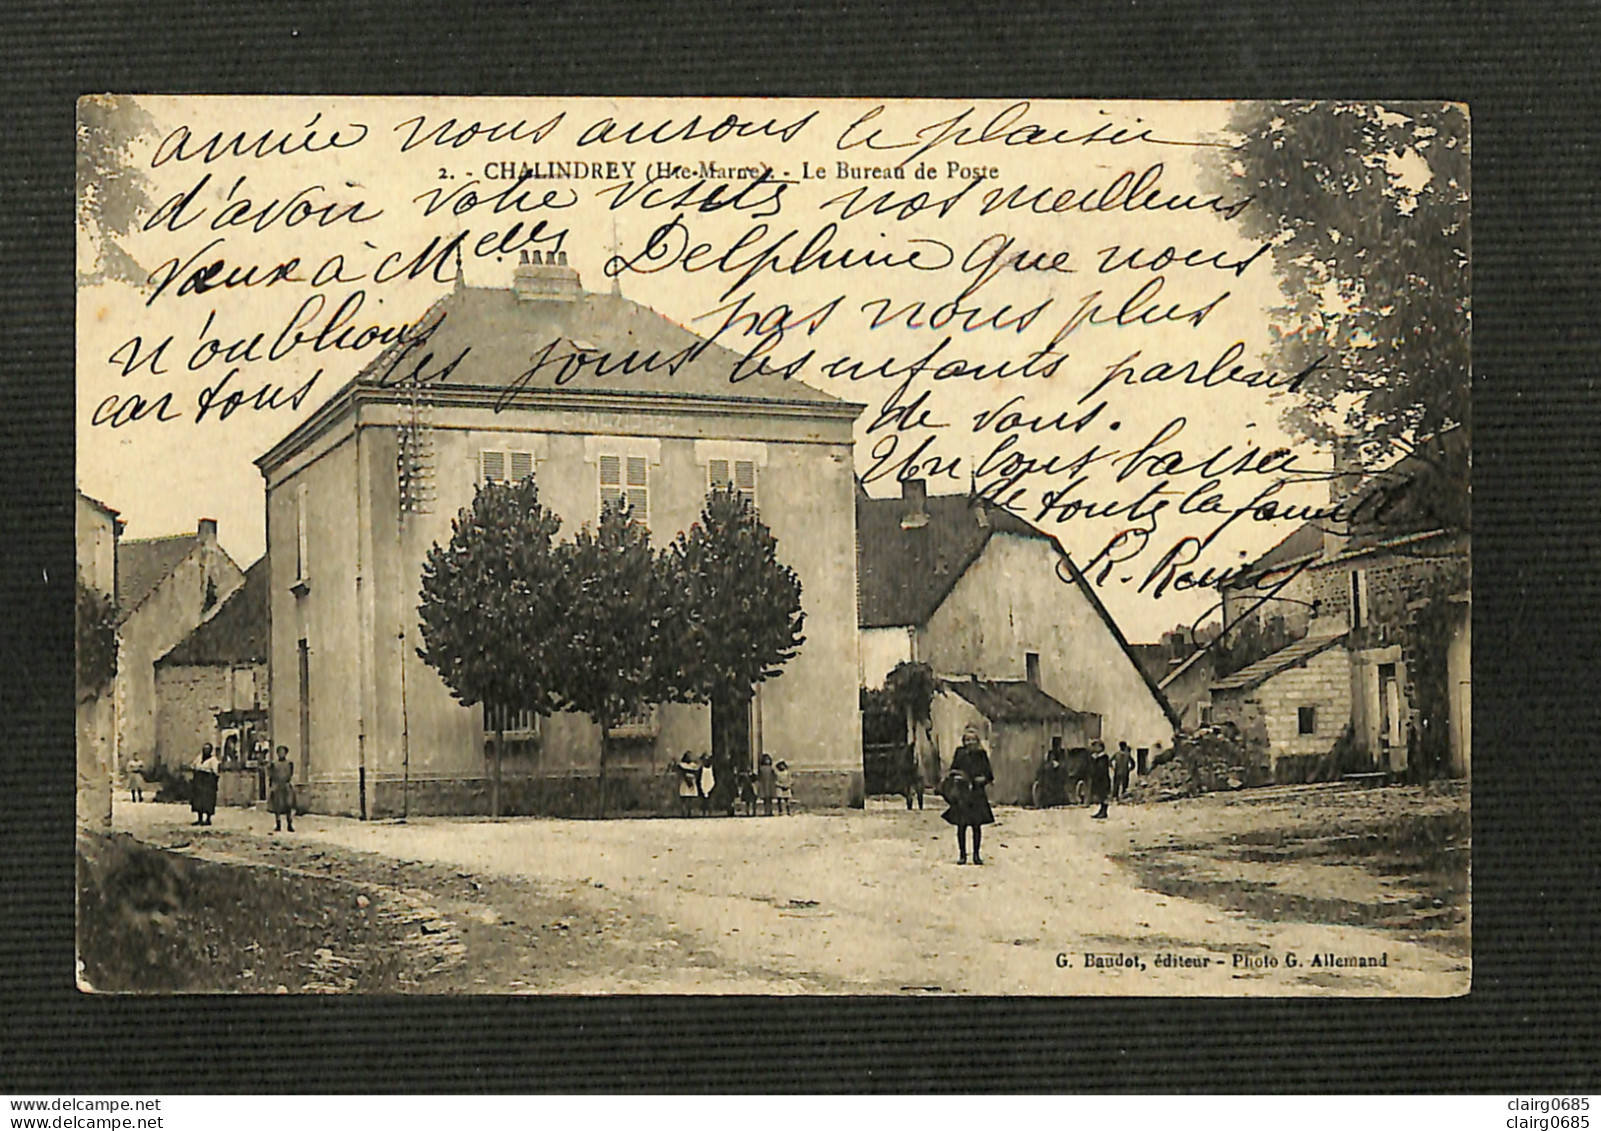 année nous aurons le plaisir
2. - CHALINDREY (Hte-Marne). - Le Bureau de Poste
d'avoir votre visite nos meilleurs
Vœux à Melles Delphine que nous
n'oublions pas nous plus
car tous les jours les enfants parlent
de vous.
Un bons baiser
de toute la famille
R. Remy
G. Baudot, éditeur - Photo G. Allemand
www.delcampe.net
clairg0685
www.delcampe.net
clairg0685